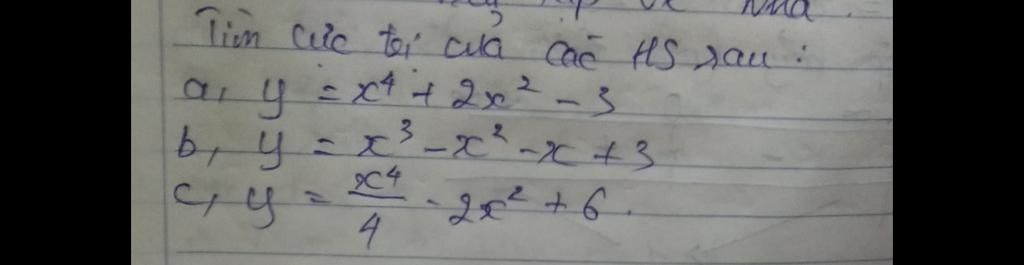 Tìm cực trị của các HS sau :
a, y = x⁴ + 2x² - 3
b, y = x³ - x² - x + 3
c, y = x⁴/4 - 2x² + 6.